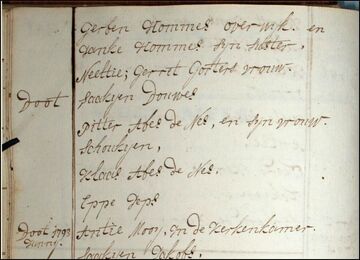 Gerben Hommes over wk. en
Janke Hommes syn suster,
Neeltie; Gerrit Gotfert vrouw.
Doot Saakjen Douwes
Pitter Abes de Nes, en syn vrouw.
Schoukjen,
Klaas Abes de Nes.
Eppe Jeps
Doot 1793 Antie Mooy, In de Kerkenkamer.
Saakjen Jakobs,